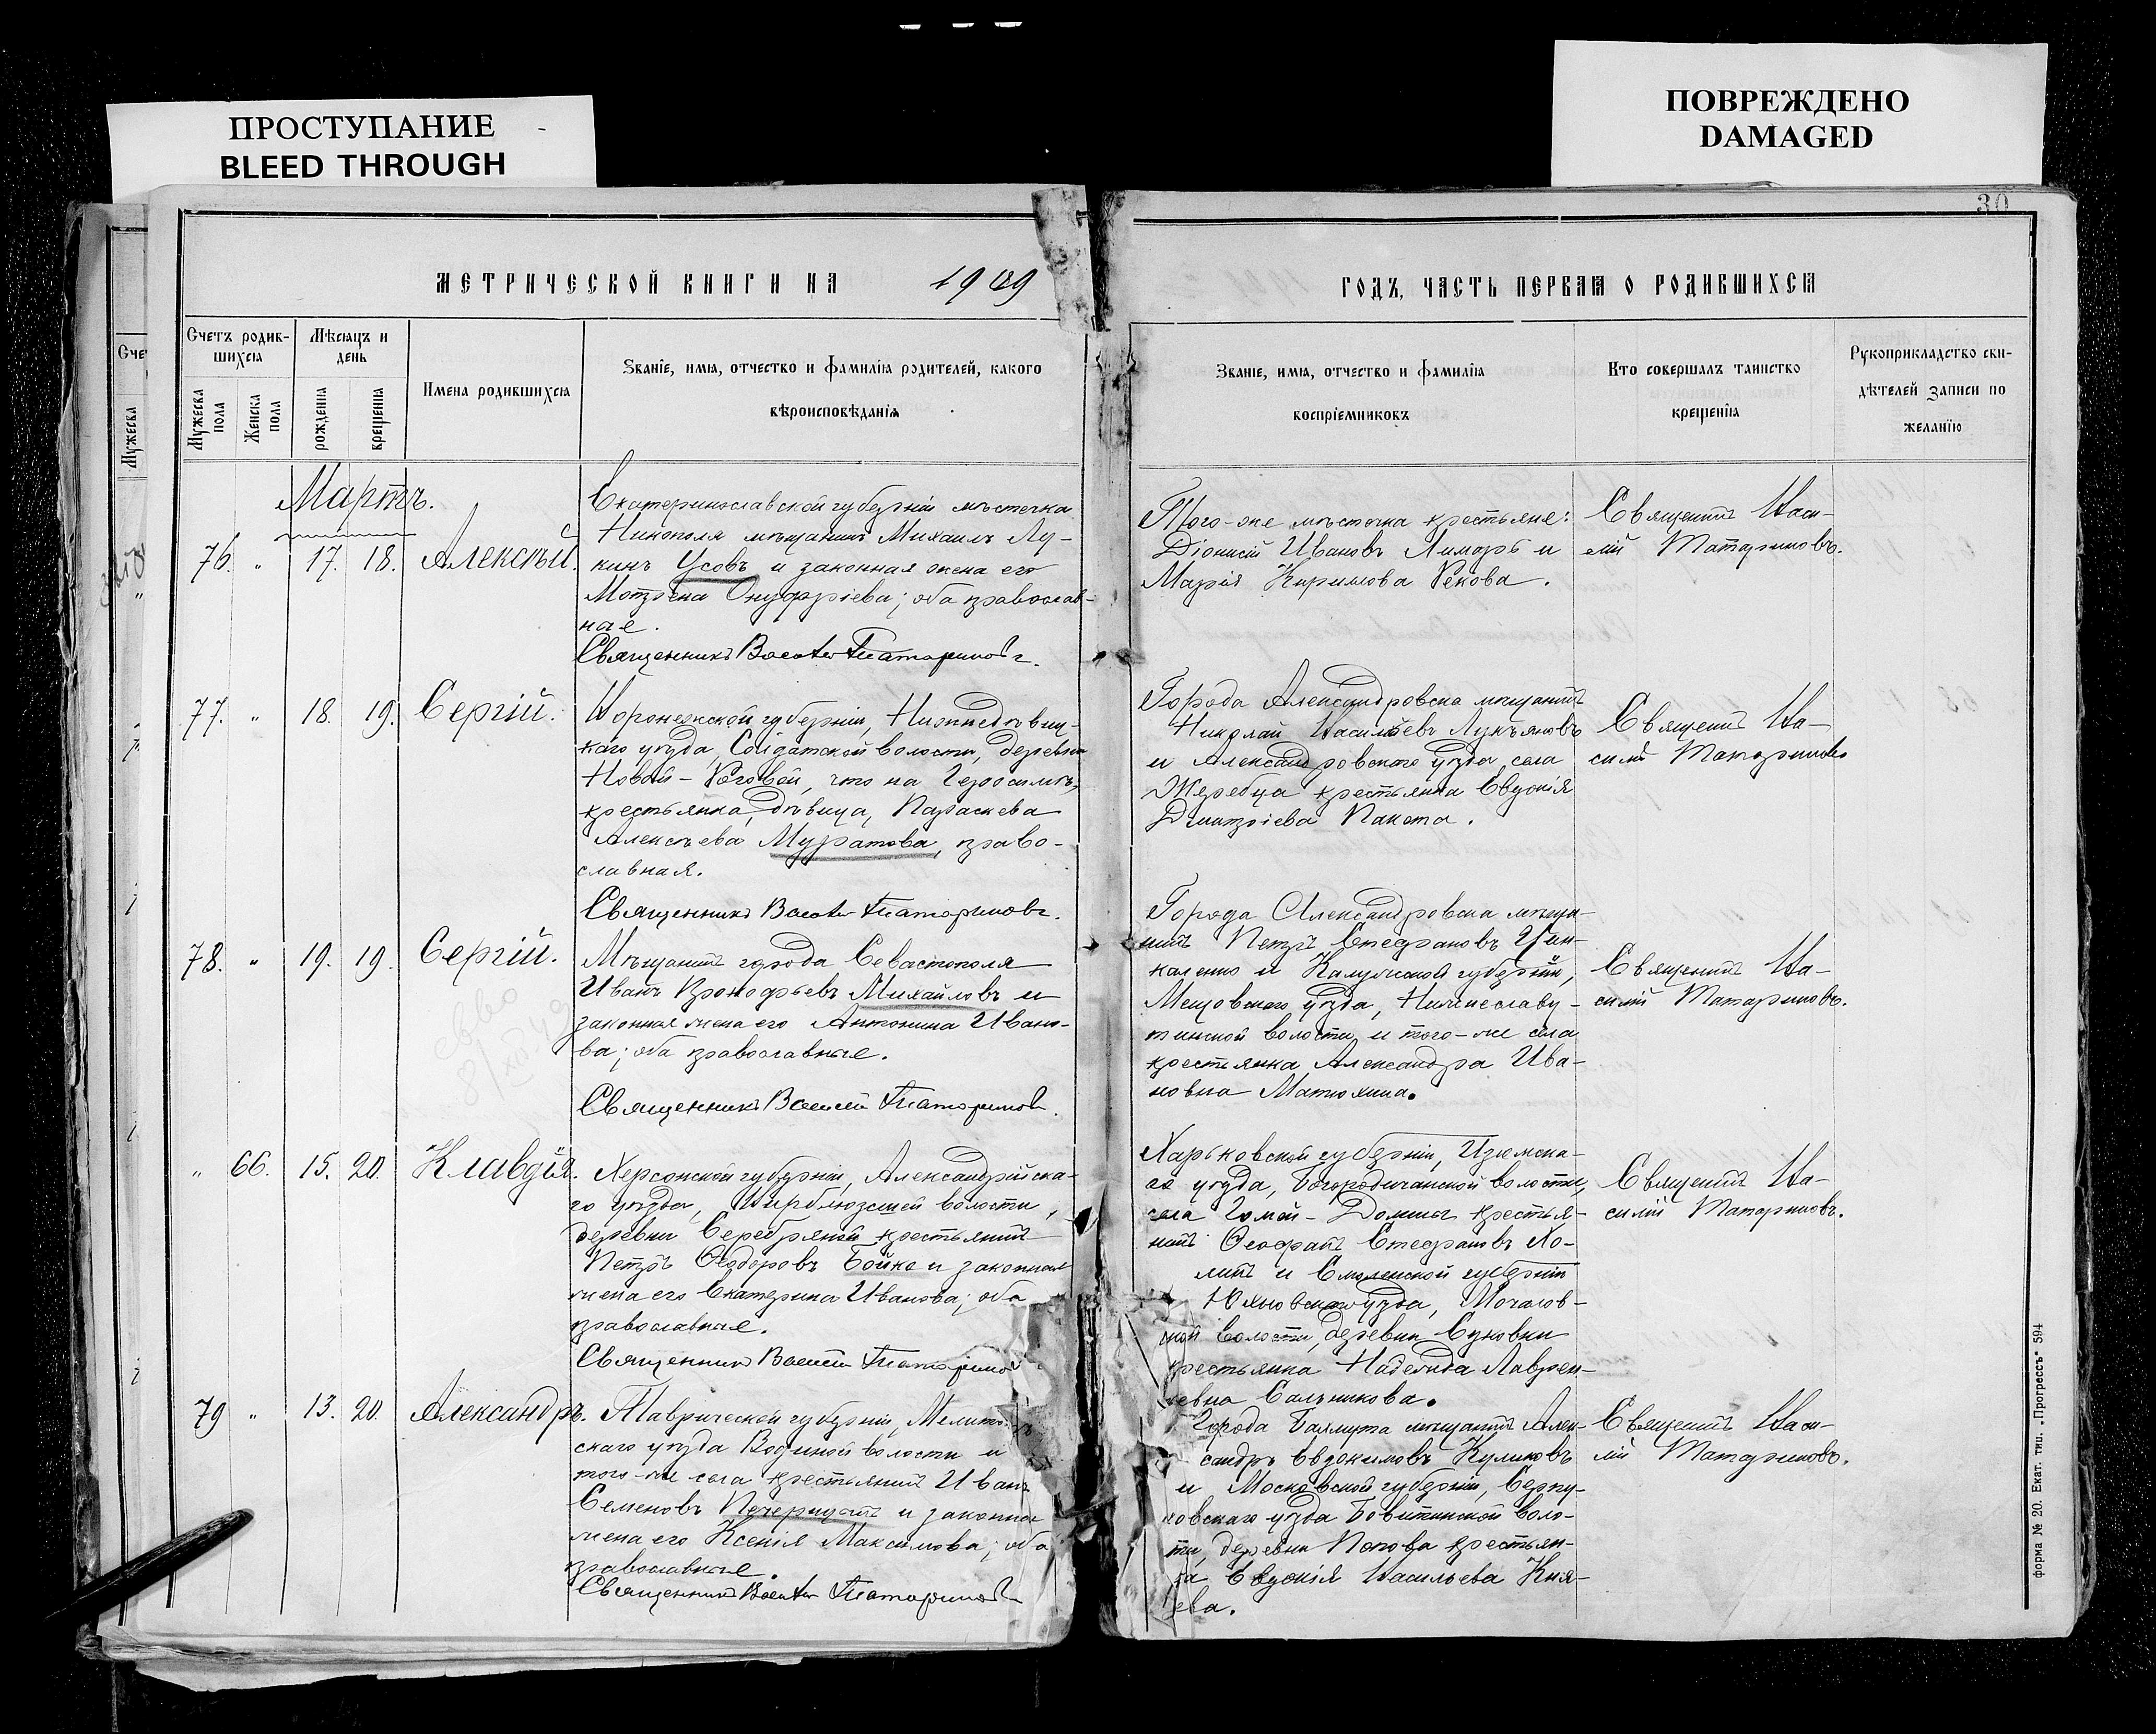 ПРОСТУПАНИЕ
BLEED THROUGH
ПОВРЕЖДЕНО
DAMAGED
30
МЕТРИЧЕСКОЙ КНИГИ НА 1909
ГОДЪ, ЧАСТЬ ПЕРВАЯ О РОДИВШИХСЯ
Счетъ родив-
шихся
Мужеска пола
Женска пола
Мѣсяцъ и
день
рожденія
крещенія
Имена родившихся
Званіе, имя, отчество и фамилія родителей, какого
вѣроисповѣданія
Званіе, имя, отчество и фамилія
воспріемниковъ
Кто совершалъ таинство
крещенія
Рукоприкладство сви-
дѣтелей записи по
желанію
Мартъ.
76. " 17. 18. Алексѣй.
Екатеринославской губерніи мѣстечка
Никополя мѣщанинъ Михаилъ Лу-
кинъ Усовъ и законная жена его
Мотрона Онуфріева; оба православ-
ные.
Священникъ Василій Татариновъ.
Того-же мѣстечка крестьяне:
Діонисій Ивановъ Лимарь и
Марія Каримова Рекова.
Священникъ Васи-
лій Татариновъ.
77. " 18. 19. Сергій.
Воронежской губерніи, Нижнедѣвиц-
каго уѣзда, Солдатской волости, деревни
Новой-Роговой, что на Герасимѣ,
крестьянка, дѣвица, Параскева
Алексѣева Муратова, право-
славная.
Священникъ Василій Татариновъ.
Города Александровска мѣщанинъ
Николай Васильевъ Лукьяновъ
и Александровскаго уѣзда, села
Жеребца крестьянка Евдокія
Дмитріева Пакота.
Священникъ Ва-
силій Татариновъ
78. " 19. 19. Сергій.
Мѣщанинъ города Севастополя
Иванъ Прокофьевъ Михайловъ и
законная жена его Антонина Ивано-
ва; оба православные.
Священникъ Василій Татариновъ.
Города Александровска мѣща-
нинъ Петръ Стефановъ
и Калужской губерніи,
Мещовскаго уѣзда,
волости и того-же села
крестьянка Александра Ива-
новна Матюхина.
Священникъ Ва-
силій Татариновъ.
" 66. 15. 20. Клавдія.
Херсонской губерніи, Александрійска-
го уѣзда, Верблюжской волости,
деревни Серебряной крестьянинъ
Петръ Ѳеодоровъ Бойко и законная
жена его Екатерина Иванова; оба
православные.
Священникъ Василій Татариновъ
Харьковской губерніи, Изюмска-
го уѣзда, Богородичанской волости,
села Голой-Долины крестья-
нинъ Ѳеофанъ Стефановъ Хо-
линъ и Смоленской губерніи
Юхновскаго уѣзда,
волости, деревни Суковки
крестьянка Надежда Лаврен-
тьевна Сальникова.
Священникъ Ва-
силій Татариновъ.
79 " 13. 20. Александръ.
Таврической губерніи, Мелитополь-
скаго уѣзда Водяной волости и
того-же села крестьянинъ Иванъ
Семеновъ и законная
жена его Ксенія Максимова; оба
православные.
Священникъ Василій Татариновъ
Города Бахмута мѣщанинъ Алек-
сандръ Евдокимовъ Куликовъ
и Московской губерніи, Серпу-
ховскаго уѣзда воло-
сти, деревни Попова крестьян-
ка Евдокія Васильева Кня-
зева.
Священникъ Васи-
лій Татариновъ.
форма № 20. Екат. тип. „Прогрессъ" 594